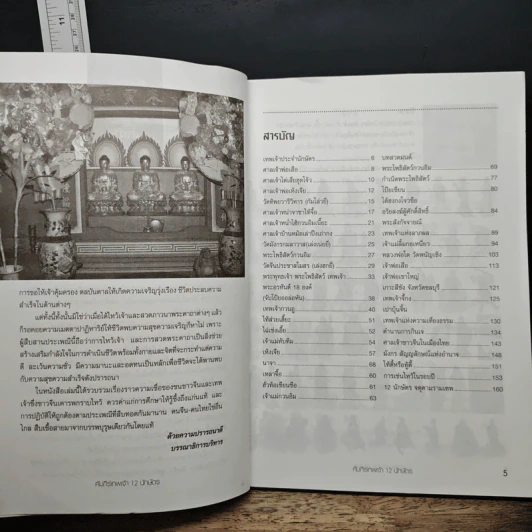 การขอให้เจ้าคุ้มครอง ดลบันดาลให้เกิดความเจริญรุ่งเรือง ชีวิตประสบความ
สำเร็จในด้านต่างๆ
แต่ทั้งนี้ทั้งนั้นมิใช่ว่าเมื่อได้ไหว้เจ้าและสวดภาวนาพระคาถาต่างๆ แล้ว
ก็รอคอยความเมตตาปาฏิหาริย์ให้ชีวิตพบความสุขความเจริญก็หาไม่ เพราะ
ผู้สืบสานประเพณีนี้ถือว่าการไหว้เจ้า และการสวดพระคาถาเป็นสิ่งช่วย
สร้างเสริมกำลังใจในการดำเนินชีวิตพร้อมทั้งกายและจิตที่จะกระทำแต่ความ
ดี ละเว้นความชั่ว มีความมานะและอดทนเป็นหลักเพื่อชีวิตจะได้พานพบ
กับความสุขความสำเร็จดังปรารถนา
ในหนังสือเล่มนี้ได้รวบรวมเรื่องราวความเชื่อของชนชาวจีนและเทพ
เจ้าซึ่งชาวจีนเคารพกราบไหว้ ควรค่าแก่การศึกษาให้รู้ซึ้งถึงแก่นแท้ และ
การปฏิบัติให้ถูกต้องตามประเพณีที่สืบทอดกันมานาน คนจีน-คนไทยใช่อื่น
ไกล สืบเชื้อสายมาจากบรรพบุรุษเดียวกันโดยแท้
ด้วยความปรารถนาดี
บรรณาธิการบริหาร
คัมภีร์เทพเจ้า 12 นักษัตร
สารบัญ
เทพเจ้าประจำนักษัตร 6
ศาลเจ้าพ่อเสือ 8
ศาลเจ้าไต่เสี่ยฮุดโจ้ว 10
ศาลเจ้าพ่อเห้งเจีย 12
วัดทิพยวารีวิหาร (กัมโล่วยี่) 15
ศาลเจ้าหน่าจาซาไท้จื้อ 17
ศาลเจ้าหน่ำไฮ้กวนอิมเนี้ยะ 19
ศาลเจ้าบ้านหม้อเล่าปึงเถ่ากง 21
วัดมังกรกมลาวาส(เล่งเน่ยยี่) 25
พระโพธิสัตว์กวนอิม 27
วัดจีนประชาสโมสร (เล่งฮกยี่) 29
พระพุทธเจ้า พระโพธิสัตว์ เทพเจ้า 33
พระอรหันต์ 18 องค์ 34
(จับโป๊ยอออล่อหั่น) 38
เทพเจ้ากวนอู 40
ไท้ส่วยเอี๊ย 51
ไฉ่เซ่งเอี๊ย 44
เจ้าแม่ทับทิม 53
เห้งเจีย 57
นาจา 58
เหล่าจื้อ 60
ฮั่วท้อเซียนซือ 61
เจ้าแม่กวนอิม 63
บทสวดมนต์
พระโพธิสัตว์กวนอิม 69
กำเนิดพระโพธิสัตว์ 77
โป๊ยเซียน 80
ไต้ฮงกงโจวซือ
อริยสงฆ์ผู้ศักดิ์สิทธิ์ 84
พระสังกัจจายน์ 91
เทพเจ้าแห่งลาภผล 99
เจ้าแม่ลิ้มกอเหนี่ยว 94
หลวงพ่อโต วัดพนัญเชิง 110
เจ้าพ่อเสือ 113
เจ้าพ่อเขาใหญ่
เกาะสีชัง จังหวัดชลบุรี 121
เทพเจ้าจี้กง 125
เปาบุ้นจิ้น 127
เทพเจ้าแห่งความเที่ยงธรรม 130
ตำนานการกินเจ 134
ศาลเจ้าชาวจีนในเมืองไทย 143
มังกร สัญลักษณ์แห่งอำนาจ 148
ไท้ตี้หรือตู้ตี้ 151
การเซ่นไหว้ในรอบปี 153
12 นักษัตร จตุคามรามเทพ 160
คัมภีร์เทพเจ้า 12 นักษัตร
5
11